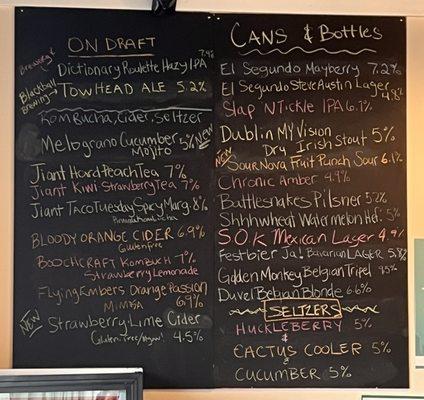 ON DRAFT
Brewery X Dictionary Roulette Hazy IPA 7.4%
Blackball Brewing TOWHEAD ALE 5.2%
Kombucha, Cider, Seltzer
Melograno Cucumber 5% NEW
Mojito
Jiant Hard Peach Tea 7%
Jiant Kiwi Strawberry Tea 7%
Jiant Taco Tuesday Spicy Marg. 8%
BLOODY ORANGE CIDER 6.9%
Gluten free
BOOCHCRAFT KOMBUCH 7%
Strawberry Lemonade
Flying Embers Orange Passion
Mimosa 6.9%
NEW Strawberry Lime Cider
Gluten Free/Vegan! 4.5%
CANS & Bottles
El Segundo Mayberry 7.2%
El Segundo Steve Austin Lager
4.8%
Slap N Tickle IPA 6.7%
Dublin My Vision
Dry Irish Stout 5%
NOW Sour Nova Fruit Punch Sour 6.1%
Chronic Amber 4.9%
Battlesnakes Pilsner 5.2%
Shhhwheat Watermelon Hef. 5%
S.O.K Mexican Lager 4.9%
Festbier Ja! Bavarian LAGER 5.8%
Golden Monkey Belgian Tripel 9.5%
Duvel Belgian Blonde 6.6%
SELTZERS
HUCKLEBERRY 5%
&
CACTUS COOLER 5%
&
CUCUMBER 5%